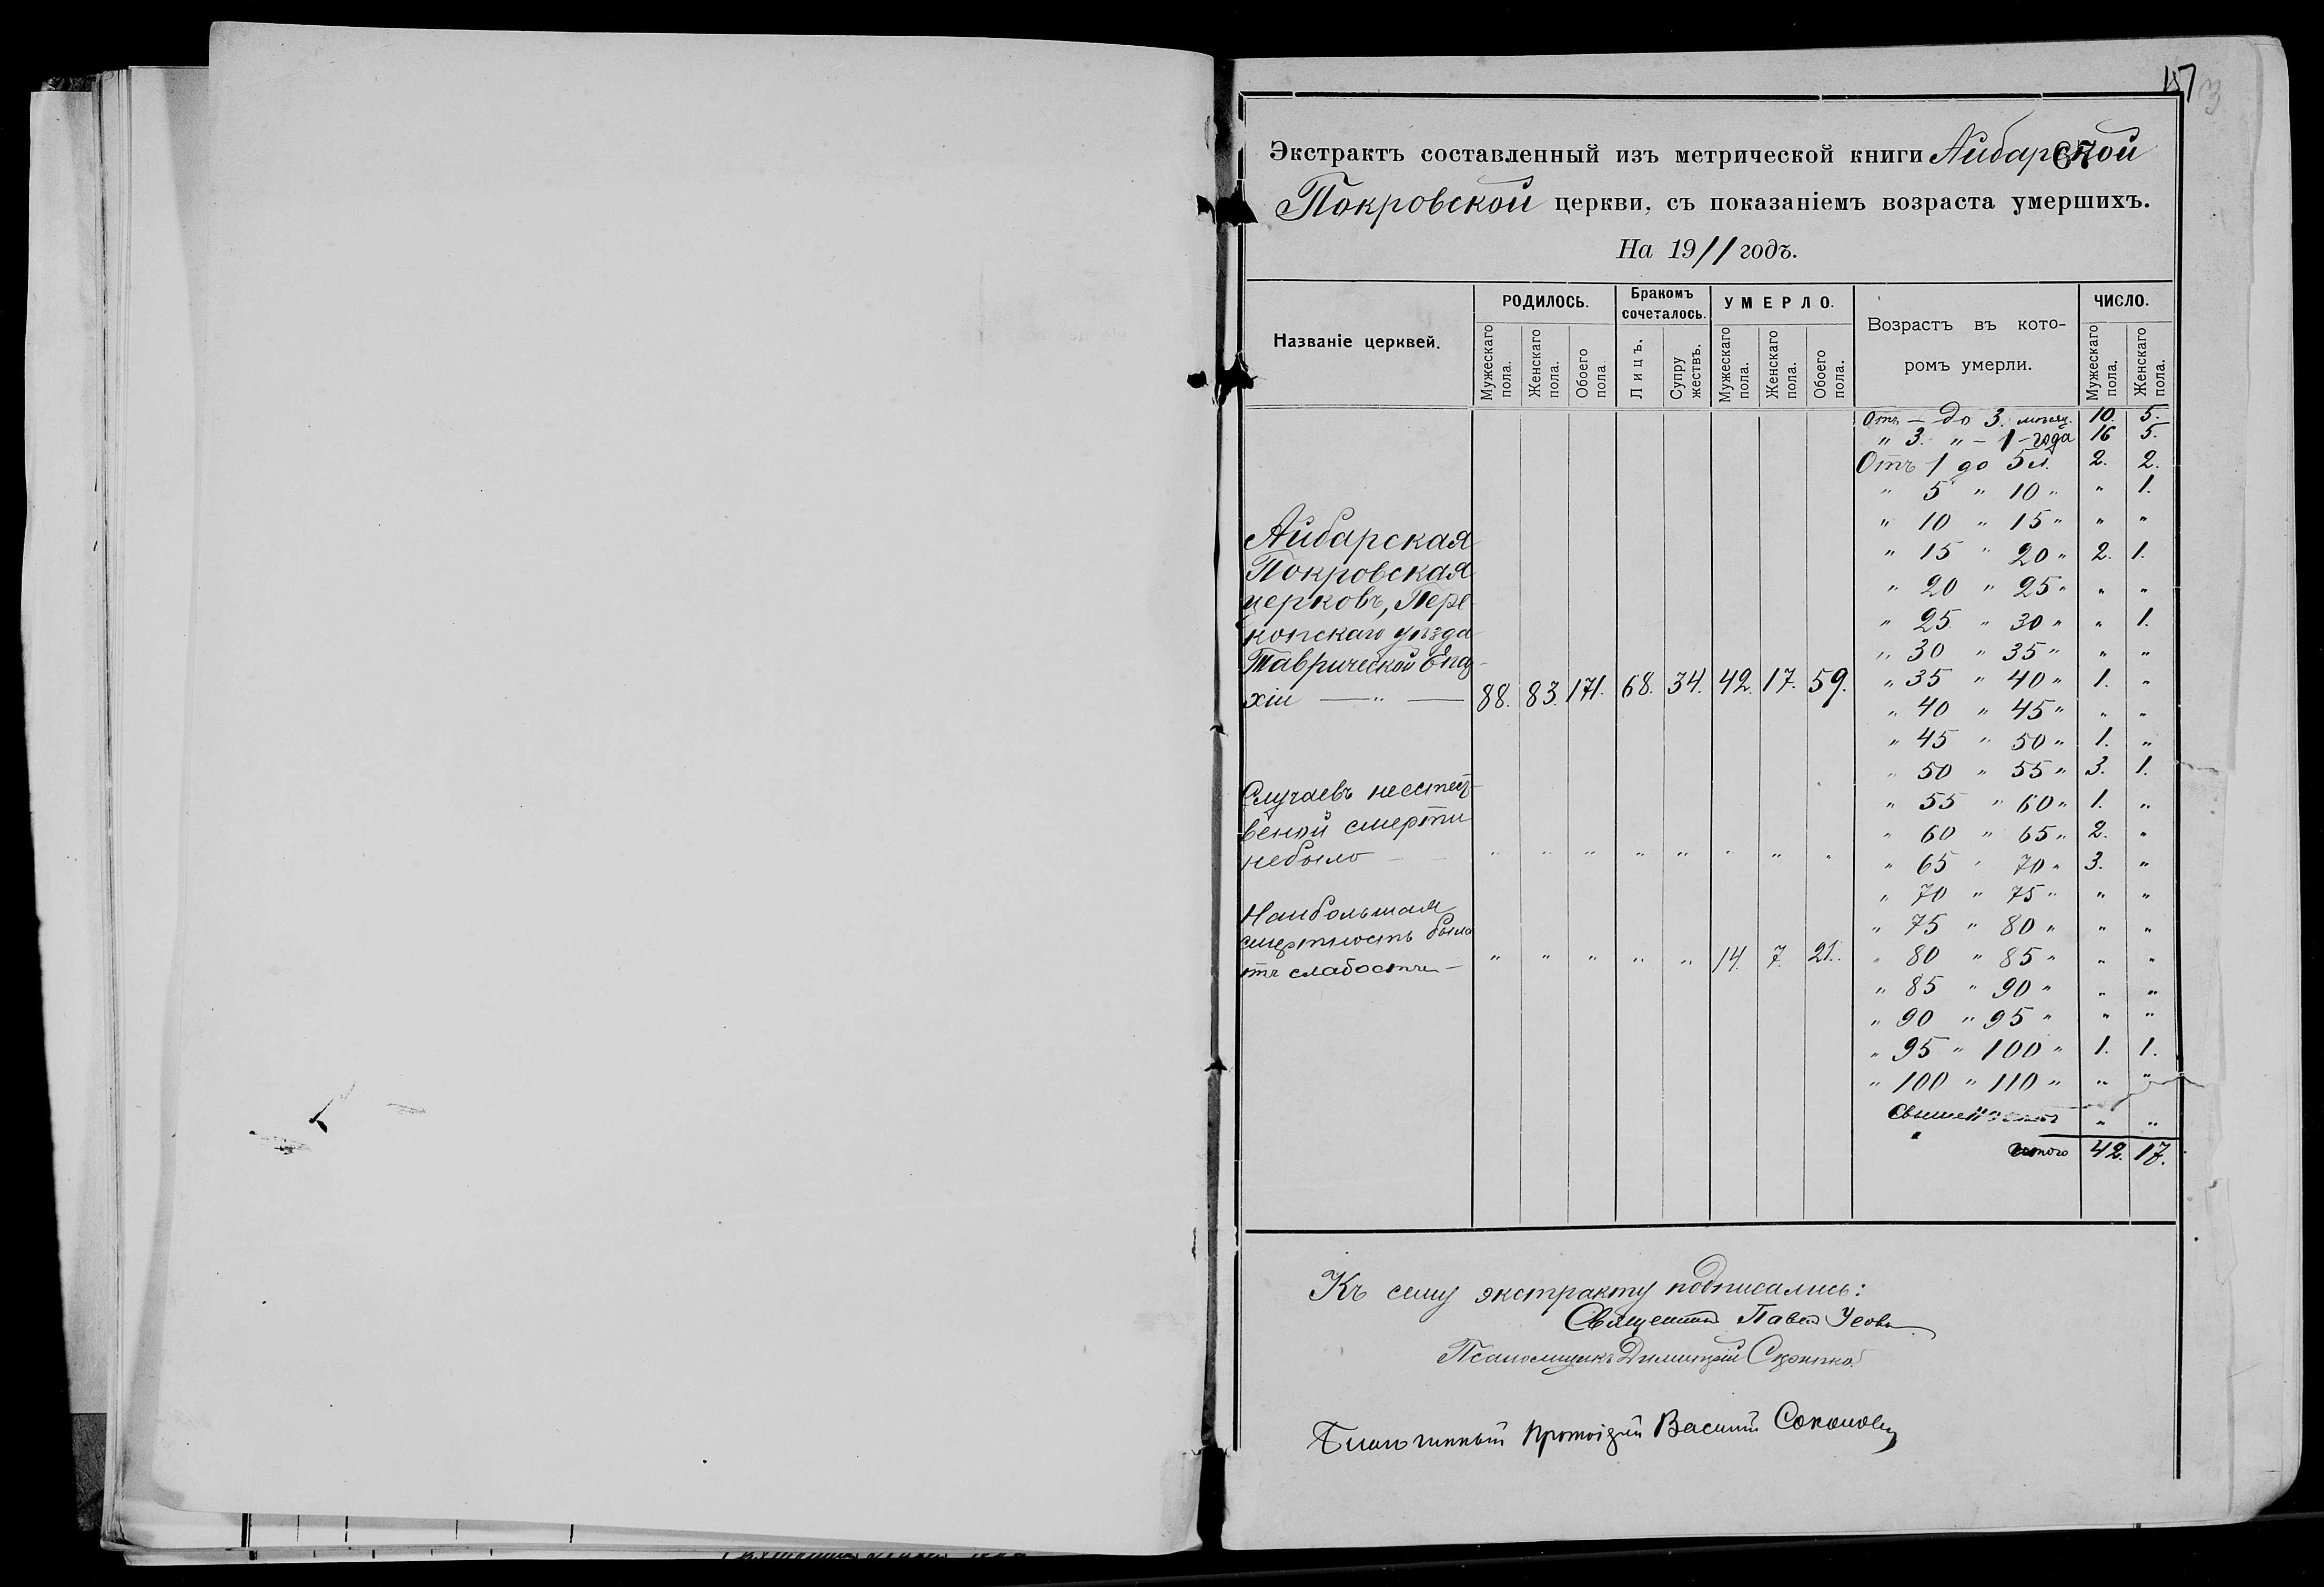 157
3
67
Экстрактъ составленный изъ метрической книги Айбарской
Покровской церкви, съ показаніемъ возраста умершихъ.
На 1911 годъ.
Названіе церквей.
РОДИЛОСЬ.
Бракомъ сочеталось.
УМЕРЛО.
Возрастъ въ кото-
ромъ умерли.
ЧИСЛО.
Мужескаго пола.
Женскаго пола.
Обоего пола
Лицъ.
Супружествъ.
Мужескаго пола.
Женскаго пола.
Обоего пола.
Мужескаго пола.
Женскаго пола.
Отъ — до 3. месяц. 10. 5.
" 3. " — 1 – года 16 5.
Отъ 1 до 5 л. 2. 2.
" 5 " 10 " " 1.
" 10 " 15 " " "
" 15 " 20 " 2. 1.
" 20 " 25 " " "
" 25 " 30 " " 1.
" 30 " 35 " " "
" 35 " 40 " 1. "
" 40 " 45 " " "
" 45 " 50 " 1. "
" 50 " 55 " 3. 1.
" 55 " 60 " 1. "
" 60 " 65 " 2. "
" 65 " 70 " 3. "
" 70 " 75 " " "
" 75 " 80 " " "
" 80 " 85 " " "
" 85 " 90 " " "
" 90 " 95 " " "
" 95 " 100 " 1. 1.
" 100 " 110 " " "
Свыше " "
итого 42. 17.
Айбарская
Покровская
церковъ, Пере-
копскаго уѣзда
Таврической Епар-
хіи — " — 88. 83. 171. 68. 34. 42. 17. 59.
Случаевъ неестест-
веной смерти
небыло — " " " " " " " "
Наибольшая
смертность была
отъ слабости — " " " " " 14. 7. 21.
Къ сему экстракту подписались:
Священникъ Павелъ Усовъ
Псаломщикъ Димитрій
Благочинный Протоіерей Василій Соколовъ